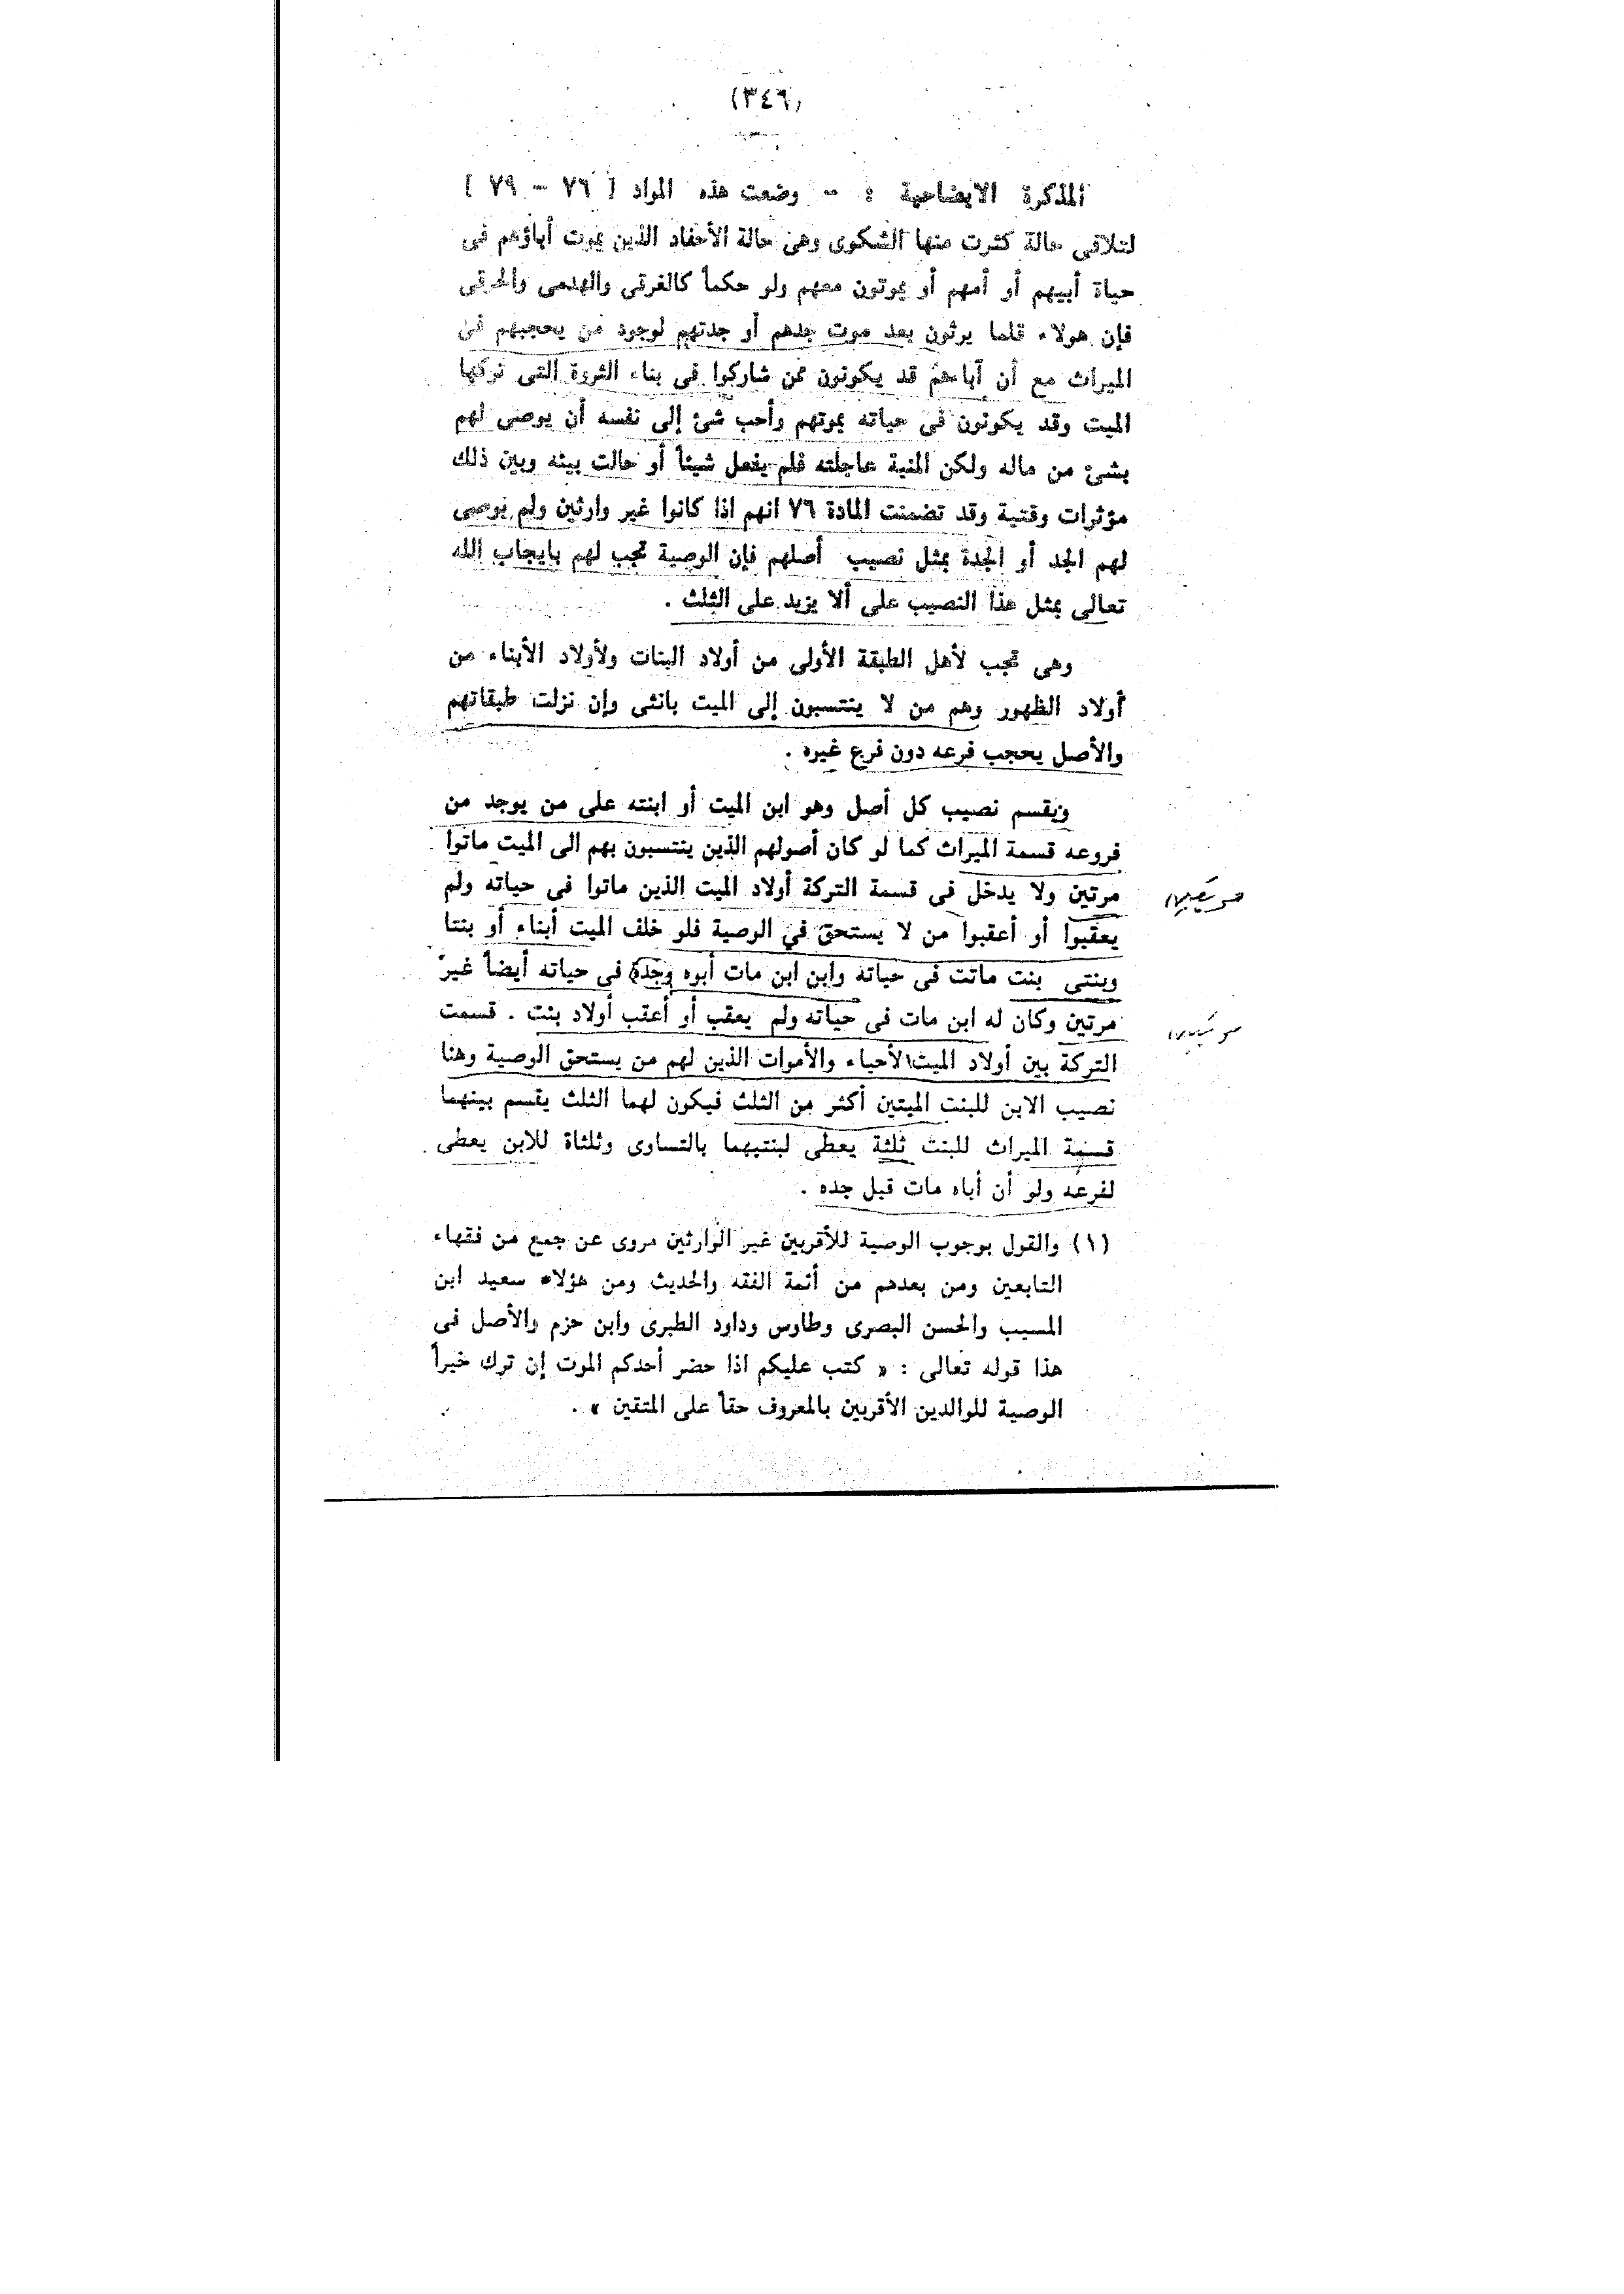 (٣٤٦)
المذكرة الايضاحية : - وضعت هذه المواد [ ٧٦ - ٧٩ ]
لتلاقى حالة كثرت منها الشكوى وهى حالة الأحفاد الذين يموت أباؤهم فى
حياة أبيهم أو أمهم أو يموتون معهم ولو حكماً كالغرقى والهدمى والحرقى
فإن هولاء قلما يرثون بعد موت جدهم أو جدتهم لوجود من يحجبهم فى
الميراث مع أن آباءهم قد يكونون ممن شاركوا فى بناء الثروة التى تركها
الميت وقد يكونون فى حياته بموتهم وأحب شئ إلى نفسه أن يوصى لهم
بشئ من ماله ولكن المنية عاجلته فلم يفعل شيئاً أو حالت بينه وبين ذلك
مؤثرات وقتية وقد تضمنت المادة ٧٦ انهم اذا كانوا غير وارثين ولم يوصى
لهم الجد أو الجدة بمثل نصيب أصلهم فإن الوصية تجب لهم بايجاب الله
تعالى بمثل هذا النصيب على ألا يزيد على الثلث .
وهى تجب لأهل الطبقة الأولى من أولاد البنات ولأولاد الأبناء من
أولاد الظهور وهم من لا ينتسبون إلى الميت بانثى وإن نزلت طبقاتهم
والأصل يحجب فرعه دون فرع غيره .
ويقسم نصيب كل أصل وهو ابن الميت أو ابنته على من يوجد من
فروعه قسمة الميراث كما لو كان أصولهم الذين ينتسبون بهم الى الميت ماتوا
مرتين ولا يدخل فى قسمة التركة أولاد الميت الذين ماتوا فى حياته ولم
يعقبوا أو أعقبوا من لا يستحق في الوصية فلو خلف الميت أبناء أو بنتا
وبنتى بنت ماتت فى حياته وابن ابن مات أبوه وجده فى حياته أيضاً غير
مرتين وكان له ابن مات فى حياته ولم يعقب أو أعقب أولاد بنت . قسمت
التركة بين أولاد الميت الأحياء والأموات الذين لهم من يستحق الوصية وهنا
نصيب الابن للبنت الميتين أكثر من الثلث فيكون لهما الثلث يقسم بينهما
قسمة الميراث للبنت ثلثة يعطى لبنتيهما بالتساوى وثلثاة للابن يعطى
لفرعه ولو أن أباه مات قبل جده .
(١) والقول بوجوب الوصية للأقربين غير الوارثين مروى عن جمع من فقهاء
التابعين ومن بعدهم من أئمة الفقه والحديث ومن هؤلاء سعيد ابن
المسيب والحسن البصرى وطاوس وداود الطبرى وابن حزم والأصل فى
هذا قوله تعالى : « كتب عليكم اذا حضر أحدكم الموت إن ترك خيراً
الوصية للوالدين الأقربين بالمعروف حقاً على المتقين » .